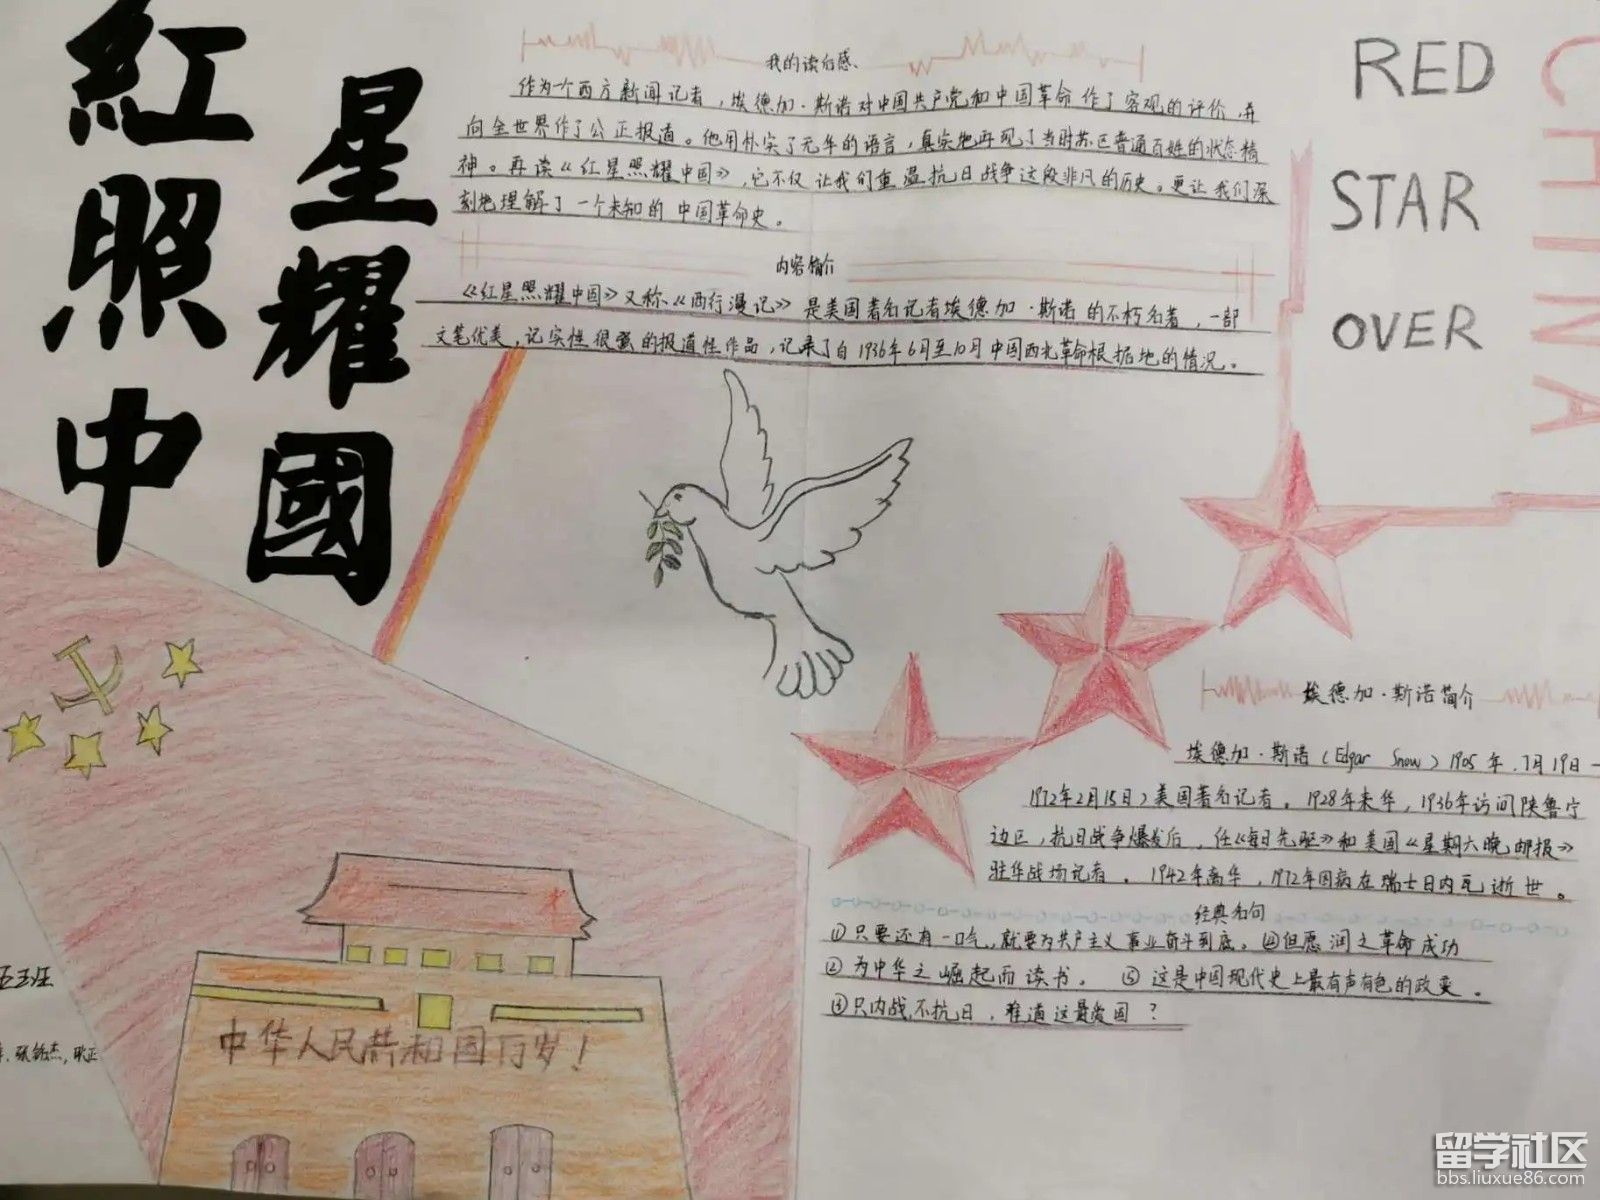 紅星照耀中國
RED
STAR
OVER
CHINA
我的读后感
作为一个西方新闻记者，埃德加·斯诺对中国共产党和中国革命作了客观的评价，并
向全世界作了公正报道。他用朴实了无华的语言，真实地再现了当时苏区普通百姓的状态精
神。再读《红星照耀中国》，它不仅让我们重温抗日战争这段非凡的历史。更让我们深
刻地理解了一个未知的中国革命史。
内容简介
《红星照耀中国》又称《西行漫记》是美国著名记者埃德加·斯诺的不朽名著，一部
文笔优美，记实性很强的报道性作品，记录了自1936年6月至10月中国西北革命根据地的情况。
埃德加·斯诺简介
埃德加·斯诺（Edgar Snow）1905年.7月19日－
1972年2月15日）美国著名记者。1928年来华，1936年访问陕鲁宁
边区，抗日战争爆发后，任《每日先驱》和美国《星期六晚邮报》
驻华战场记者。1942年离华，1972年因病在瑞士日内瓦逝世。
经典名句
①只要还有一口气，就要为共产主义事业奋斗到底。④但愿润之革命成功
②为中华之崛起而读书。 ⑤这是中国现代史上最有声有色的政变。
③只内战，不抗日，难道这最爱国？
中华人民共和国万岁！
留学社区
bbs.liuxue86.com